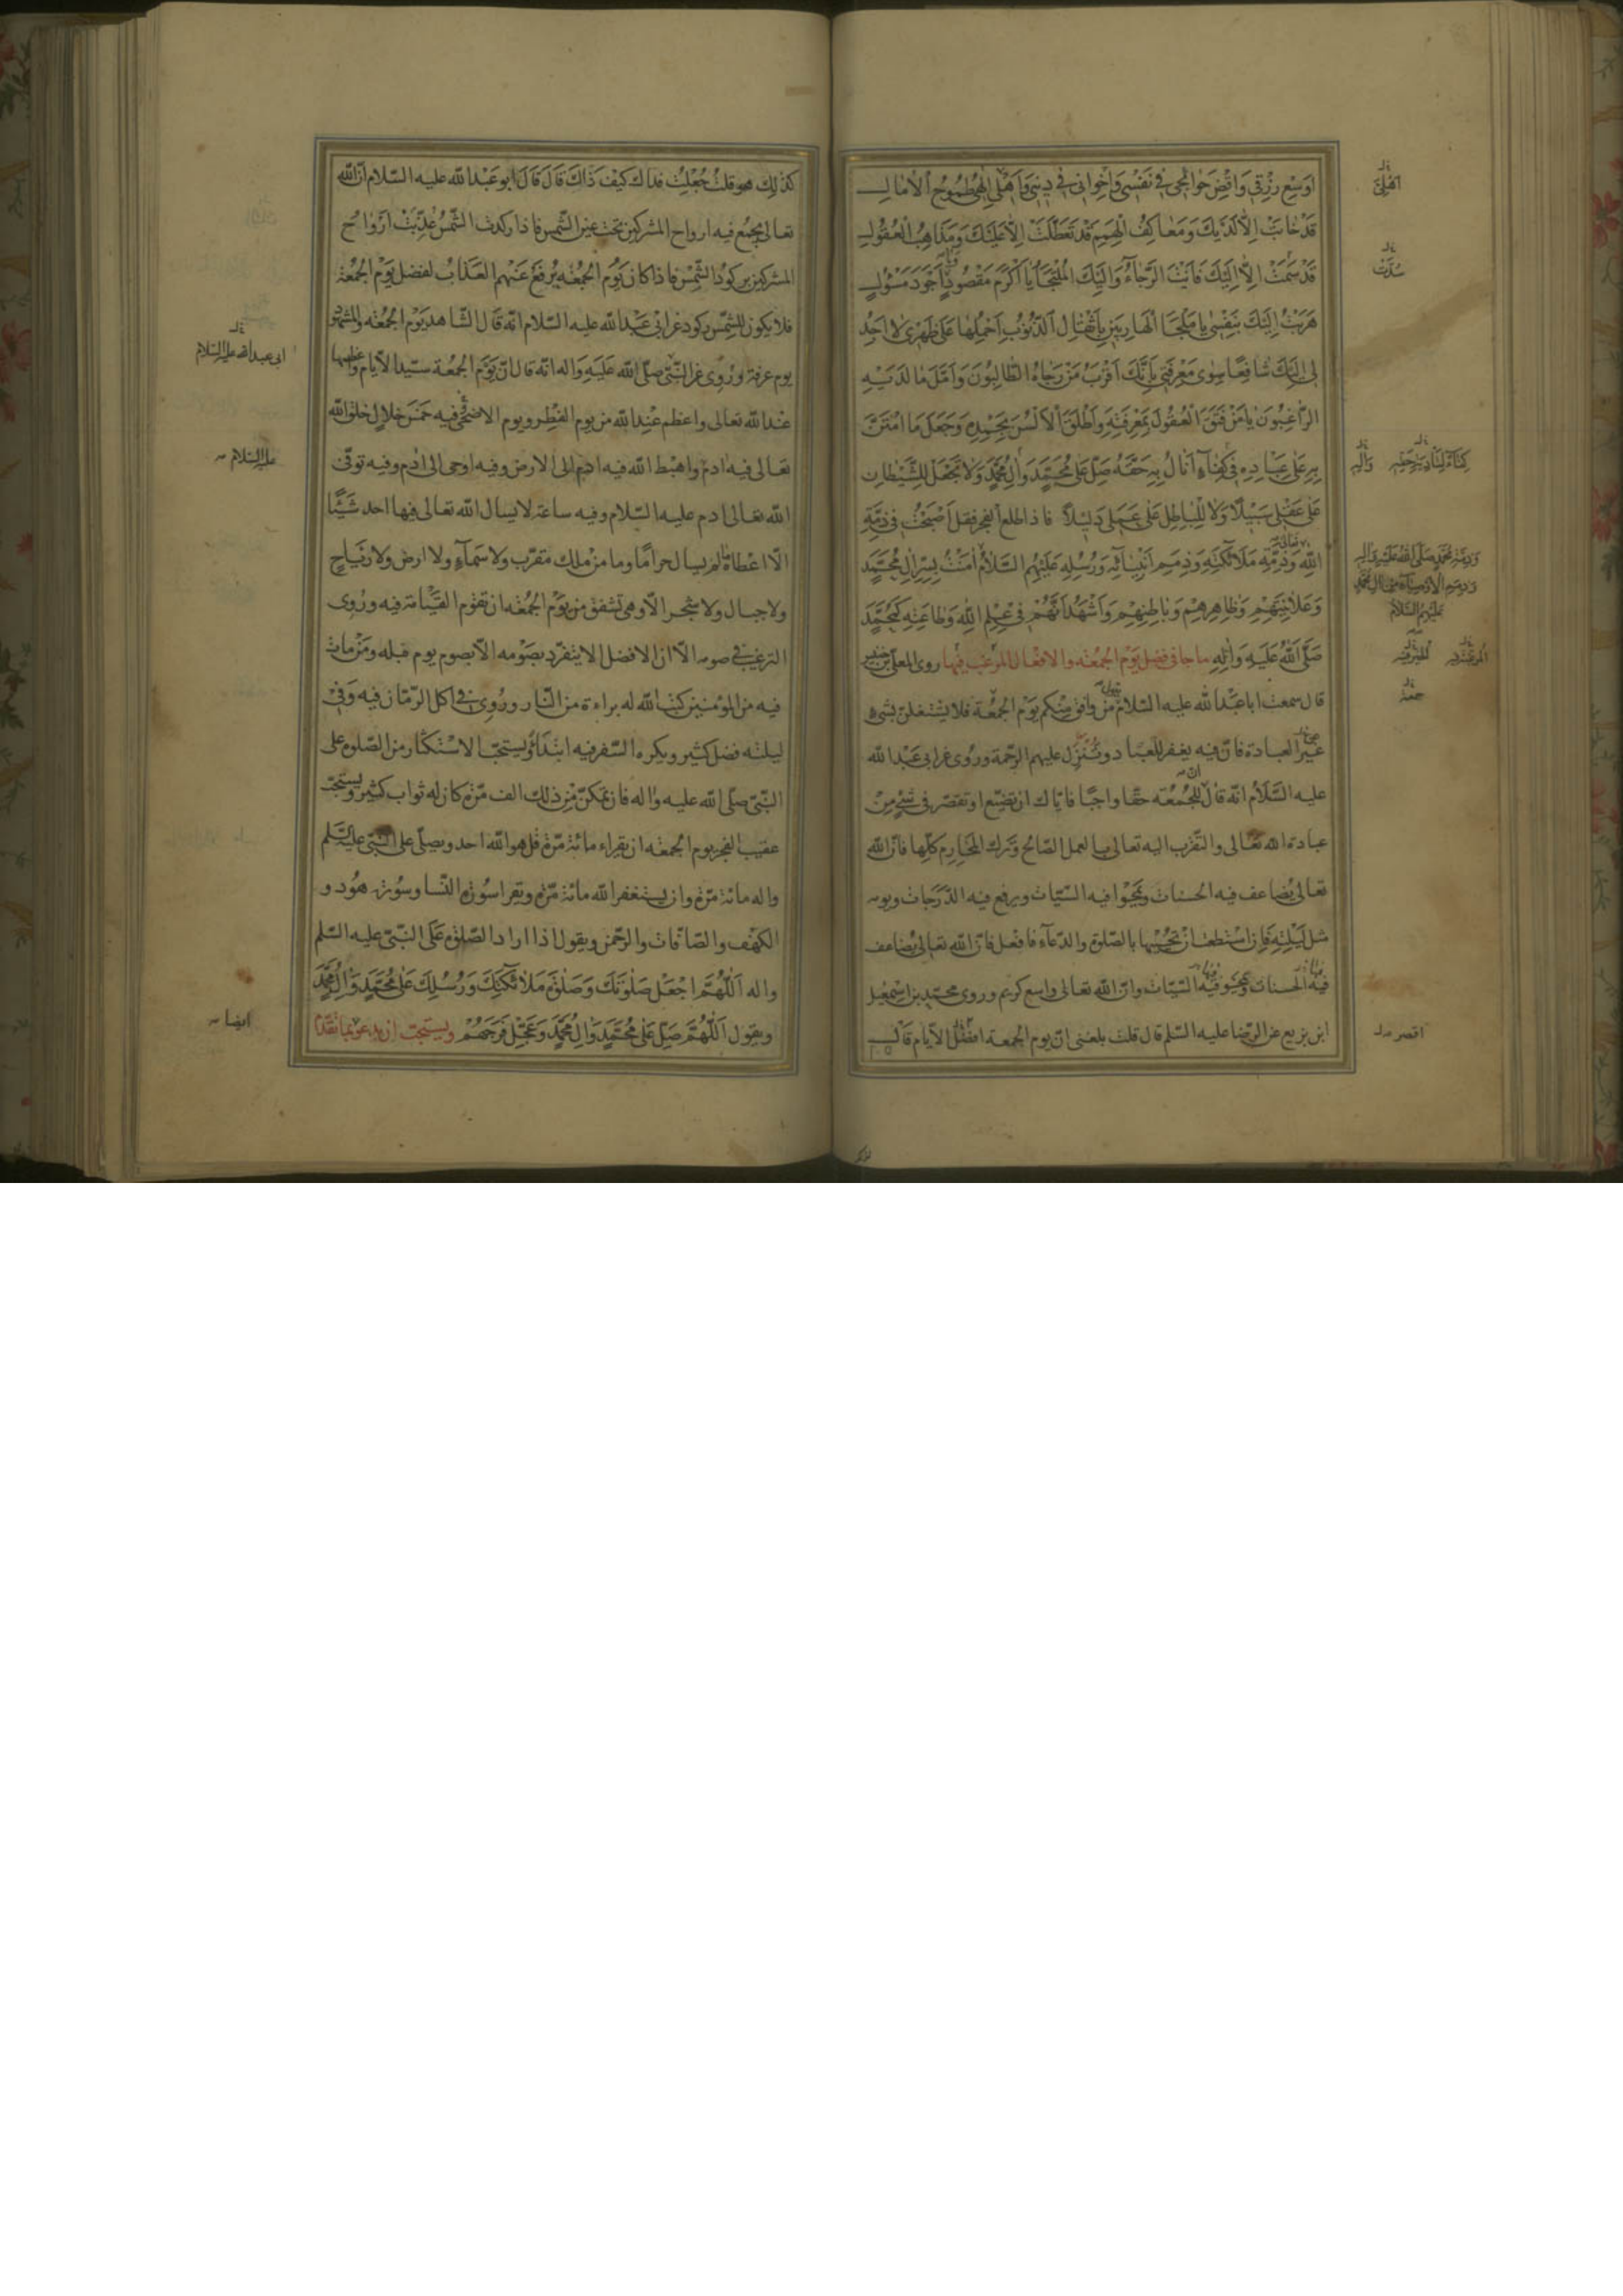 اَوْسِعْ رِزْقِي وَاقْضِ حَوائِجي في نَفْسي وَاِخْواني في ديني وَاَهْلي اِلهي طُمُوحُ الْامالِ
قَدْ خابَتْ اِلّا لَدَيْكَ وَمَعاكِفُ الْهِمَمِ قَدْ تَعَطَّلَتْ اِلّا عَلَيْكَ وَمَذاهِبُ الْعُقُولِ
قَدْ سَمَتْ اِلّا اِلَيْكَ فَاَنْتَ الرَّجاءُ وَاِلَيْكَ الْمُلْتَجَأُ يا اَكْرَمَ مَقْصُودٍ وَاَجْوَدَ مَسْئُولٍ
هَرَبْتُ اِلَيْكَ بِنَفْسي يا مَلْجَأَ الْهارِبينَ بِاَثْقالِ الذُّنُوبِ اَحْمِلُها عَلى ظَهْري لا اَجِدُ
لي اِلَيْكَ شافِعًا سِوى مَعْرِفَتي بِاَنَّكَ اَقْرَبُ مَنْ رَجاهُ الطّالِبُونَ وَاَمَّلَ ما لَدَيْهِ
الرّاغِبُونَ يا مَنْ فَتَقَ الْعُقُولَ بِمَعْرِفَتِهِ وَاَطْلَقَ الْاَلْسُنَ بِحَمْدِهِ وَجَعَلَ مَا امْتَنَّ
بِهِ عَلى عِبادِهِ في كِفاءٍ اَنالَ بِهِ حَقَّهُ صَلِّ عَلى مُحَمَّدٍ وَالِ مُحَمَّدٍ وَلا تَجْعَلْ لِلشَّيْطانِ
عَلى عَقْلي سَبيلاً وَلا لِلْباطِلِ عَلى عَمَلي دَليلاً فاذا طلع الفجر فقل اَصْبَحْتُ في ذِمَّةِ
اللهِ وَذِمَّةِ مَلائِكَتِهِ وَذِمَمِ اَنْبِيائِهِ وَرُسُلِهِ عَلَيْهِمُ السَّلامُ امَنْتُ بِسِرِّ الِ مُحَمَّدٍ
وَعَلانِيَتِهِمْ وَظاهِرِهِمْ وَباطِنِهِمْ وَاَشْهَدُ اَنَّهُمْ في عِلْمِ اللهِ وَطاعَتِهِ كَمُحَمَّدٍ
صَلَّى اللهُ عَلَيْهِ وَالِهِ ما جا في فضل يَوْم الجُمُعَه والافعال المرغب فيها روى المعلى بن خنيس
قال سمعت ابا عبد الله عليه السلام يقول من وافق منكم يَوْم الجمعة فلا يشتغلن بشئ
غير العبادة فان فيه يغفر للعباد وتنزل عليهم الرحمة وروى عن ابي عَبْد الله
عليه السلام انه قال ان للجُمُعَه حقا واجبا فاياك ان تضيع او تقصر في شئ مِنْ
عبادة الله تعالى والتقرب اليه تعالى بالعمل الصالح وترك المحارم كلها فان الله
تعالى يضاعف فيه الحسنات ويمحوا فيه السيات ويرفع فيه الدرجات ويومه
مثل لَيْلَتِهِ فَاِن اسْتَطعت اَنْ تحييها بالصلوة والدعاء فافعل فان الله تعالى يضاعف
فيها الحسنات ويمحو فيها السيات وان الله تعالى واسع كريم وروى محمد بن اسمعيل
ابن بزيع عن الرضا عليه السلم قال قلت بلغنى ان يوم الجمعه اقصر الايام قال
اَهْلي
سُدَّتْ
وَالِهِ
وَذِمَّةِ مُحَمَّدٍ صَلَّى اللهُ عَلَيْهِ وَالِهِ
وَذِمَمِ الْاَوْصِياءِ مِنْ الِ مُحَمَّدٍ
عَلَيْهِمُ السَّلامُ
جمعة
اقصر
كذلك هو قلتُ جُعِلْتُ فداك كيف ذاك قَالَ قَالَ ابو عَبْد الله عليه السلام ان الله
تعالى يجمع فيه ارواح المشركين تحت عين الشمس فاذا ركدت الشمس عُذِّبَتْ اَرْواح
المشركين بركود الشمس فاذا كان يَوْم الجُمُعَه يُرفع عَنْهم العَذاب لفضل يَوْم الجُمُعَة
فلا يكون للشمس ركود وعن ابي عَبْد الله عليه السلام انه قال الشاهد يَوْم الجُمُعَه والمشهود
يوم عرفة ورُوِى عن النَّبي صلّى الله عَلَيْه وَاله انّه قال ان يَوْم الجُمُعة سيد الايام واعظمها
عند الله تعالى واعظم عند الله من يوم الفطر ويوم الاضحى فيه خمس خلال خلق الله
تعالى فيه ادم واهبط الله فيه ادم الى الارض وفيه اوحى الى ادم وفيه توفى
الله تعالى ادم عليه السلام وفيه ساعة لا يسال الله تعالى فيها احد شَيْئًا
الا اعطاه ما لم يسال حرامًا وما من ملك مقرب ولا سَماءٍ ولا ارض ولا رياح
ولا جبال ولا شجر الا وهى تشفق من يَوْم الجُمُعَه ان تقوم القيامة فيه ورُوِى
الترغيب في صومه الا ان الافضل الا ينفرد بصَوْمه الا بصوم يوم قبله ومَنْ مات
فيه من المؤمنين كتب الله له براءة من النار ورُوِى في اكل الرمان فيه وَفي
ليلته فضل كثير ويكره السفر فيه ابتداءً ويستحب الاستكثار من الصلوة على
النبي صلى الله عليه واله فان تمكن من ذلك الف مرّة كان له ثواب كثير ويستحب
عقيب الفجر يوم الجمعه ان يقراء مائة مرّة قل هو الله احد ويصلى على النبى عليه السّلم
واله مائة مرّة وان يستغفر الله مائة مرّة ويقرا سُورة النسا وسُورة هُود و
الكهف والصافات والرحمن ويقول اذا اراد الصلوة عَلَى النَّبيّ عليه السّلم
واله اَللّهُمَّ اجْعَلْ صَلَوتَكَ وَصَلوةَ مَلائِكَتِكَ وَرُسُلِكَ عَلى مُحَمَّدٍ وَالِ مُحَمَّدٍ
ويقول اَللّهُمَّ صَلِّ عَلى مُحَمَّدٍ وَالِ مُحَمَّدٍ وَعَجِّلْ فَرَجَهُمْ ويستحب ان يدعو بما تقدم
ابى عبد الله عليه السلام
عليه السلام
ايضا